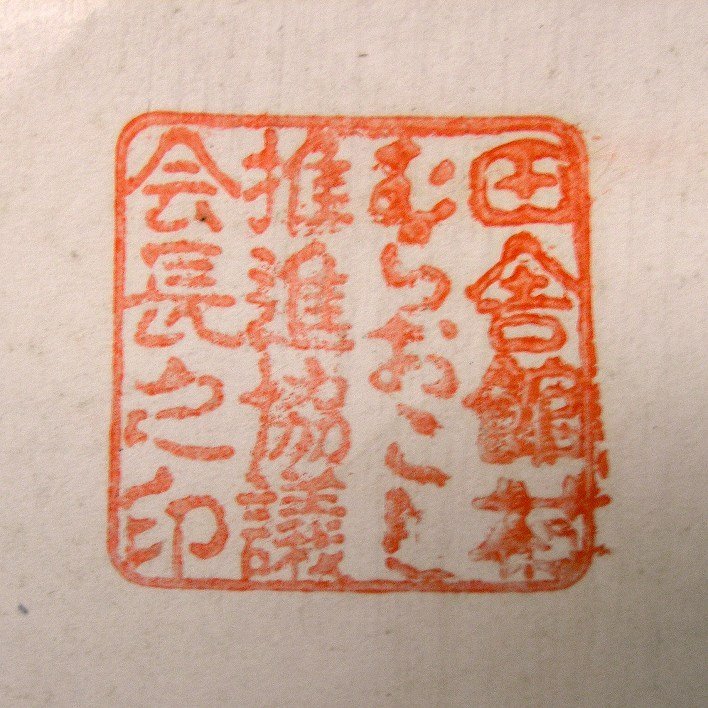 田舎館村
むらおこし
推進協議
会長之印